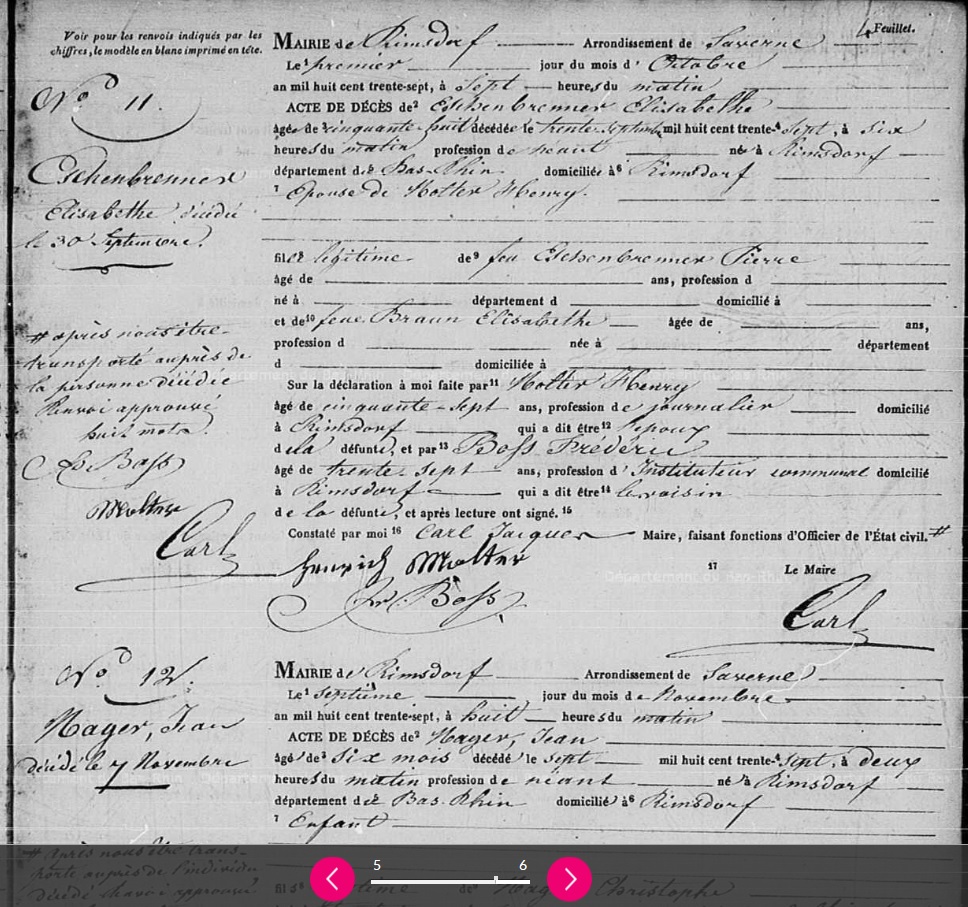 Voir pour les renvois indiqués par les
chiffres, le modèle en blanc imprimé en tête.
4 Feuillet.
MAIRIE de Rimsdorf Arrondissement de Saverne
Le 1 premier jour du mois d' Octobre
an mil huit cent trente-sept, à Sept heures du matin
ACTE DE DÉCÈS de 2 Eschenbrenner Elisabethe
âgée de 3 cinquante-huit décédée le trente Septembre mil huit cent trente- 4 sept, à six
heures du matin profession de néant née à Rimsdorf
département du Bas-Rhin domiciliée à 6 Rimsdorf
7 Epouse de Motter Henry.
fille 8 légitime de 9 feu Eschenbrenner Pierre
âgé de ans, profession d
né à département d domicilié à
et de 10 feue Braun Elisabethe âgée de ans,
profession d née à département
d domiciliée à
Sur la déclaration à moi faite par 11 Motter Henry
âgé de cinquante-sept ans, profession de journalier domicilié
à Rimsdorf qui a dit être 12 l'époux
de la défunte, et par 13 Boss Frédéric
âgé de trente-sept ans, profession d' Instituteur communal domicilié
à Rimsdorf qui a dit être 14 le voisin
de la défunte, et après lecture ont signé. 15
Constaté par moi 16 Carl Jacques Maire, faisant fonctions d'Officier de l'État civil. #
17 Le Maire
Henrich Motter
Fr. Boss
Carl
N° 11.
Eschenbrenner
Elisabethe décédée
le 30 Septembre.
# après nous être
transporté auprès de
la personne décédée
Renvoi approuvé
huit mots.
Fr. Boss
Motter
Carl
N° 12.
Mager, Jean
décédé le 7 Novembre
MAIRIE de Rimsdorf Arrondissement de Saverne
Le 1 Septième jour du mois de Novembre
an mil huit cent trente-sept, à huit heures du matin
ACTE DE DÉCÈS de 2 Mager, Jean
âgé de 3 six mois décédé le sept mil huit cent trente- 4 sept, à deux
heures du matin profession de néant né à Rimsdorf
département du Bas-Rhin domicilié à 6 Rimsdorf
7 Enfant
# après nous être trans-
porté auprès de l'individu
décédé Renvoi approuvé
fils 8 légitime de 9 Mager Christophe
5 6